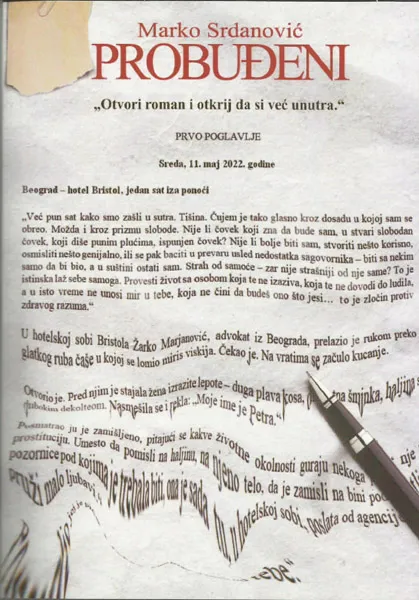 Marko Srdanović
PROBUĐENI
„Otvori roman i otkrij da si već unutra.“
PRVO POGLAVLJE
Sreda, 11. maj 2022. godine
Beograd – hotel Bristol, jedan sat iza ponoći
„Već pun sat kako smo zašli u sutra. Tišina. Čujem je tako glasno kroz dosadu u kojoj sam se
obreo. Možda i kroz prizmu slobode. Nije li čovek koji zna da bude sam, u stvari slobodan
čovek, koji diše punim plućima, ispunjen čovek? Nije li bolje biti sam, stvoriti nešto korisno,
osmisliti nešto genijalno, ili se pak baciti u prevaru usled nedostatka sagovornika – biti sa nekim
samo da bi bio, a u suštini ostati sam. Strah od samoće – zar nije strašniji od nje same? To je
istinska laž sebe samoga. Provesti život sa osobom koja te ne izaziva, koja te ne dovodi do ludila,
a u isto vreme ne unosi mir u tebe, koja ne čini da budeš ono što jesi... to je zločin proti-
zdravog razuma.“
U hotelskoj sobi Bristola Žarko Marjanović, advokat iz Beograda, prelazio je rukom preko
glatkog ruba čaše u kojoj se lomio miris viskija. Čekao je. Na vratima se začulo kucanje.
Otvorio je. Pred njim je stajala žena izrazite lepote – duga plava kosa, šminka, haljina s
dubokim dekolteom. Nasmešila se i rekla: „Moje ime je Petra.“
Posmatrao ju je zamišljeno, pitajući se kakve životne okolnosti guraju nekoga
prostituciju. Umesto da pomisli na haljinu, na njeno telo, da je zamisli na bini pod
pozornice pod kojima je trebala biti, ona je sada tu, u hotelskoj sobi, poslata od agencije
pruži malo ljubavi
sebe.“